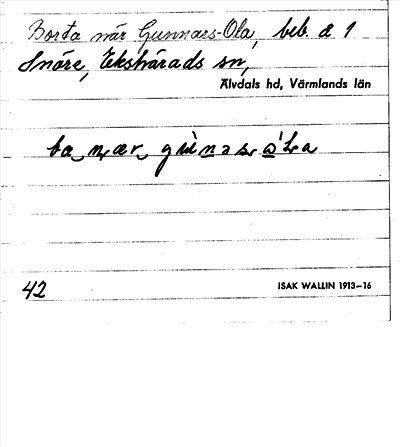 Borta när Gunnars-Ola, beb. å 1
Snåre, Ekshärads sn,
Älvdals hd, Värmlands län
42
ISAK WALLIN 1913–16